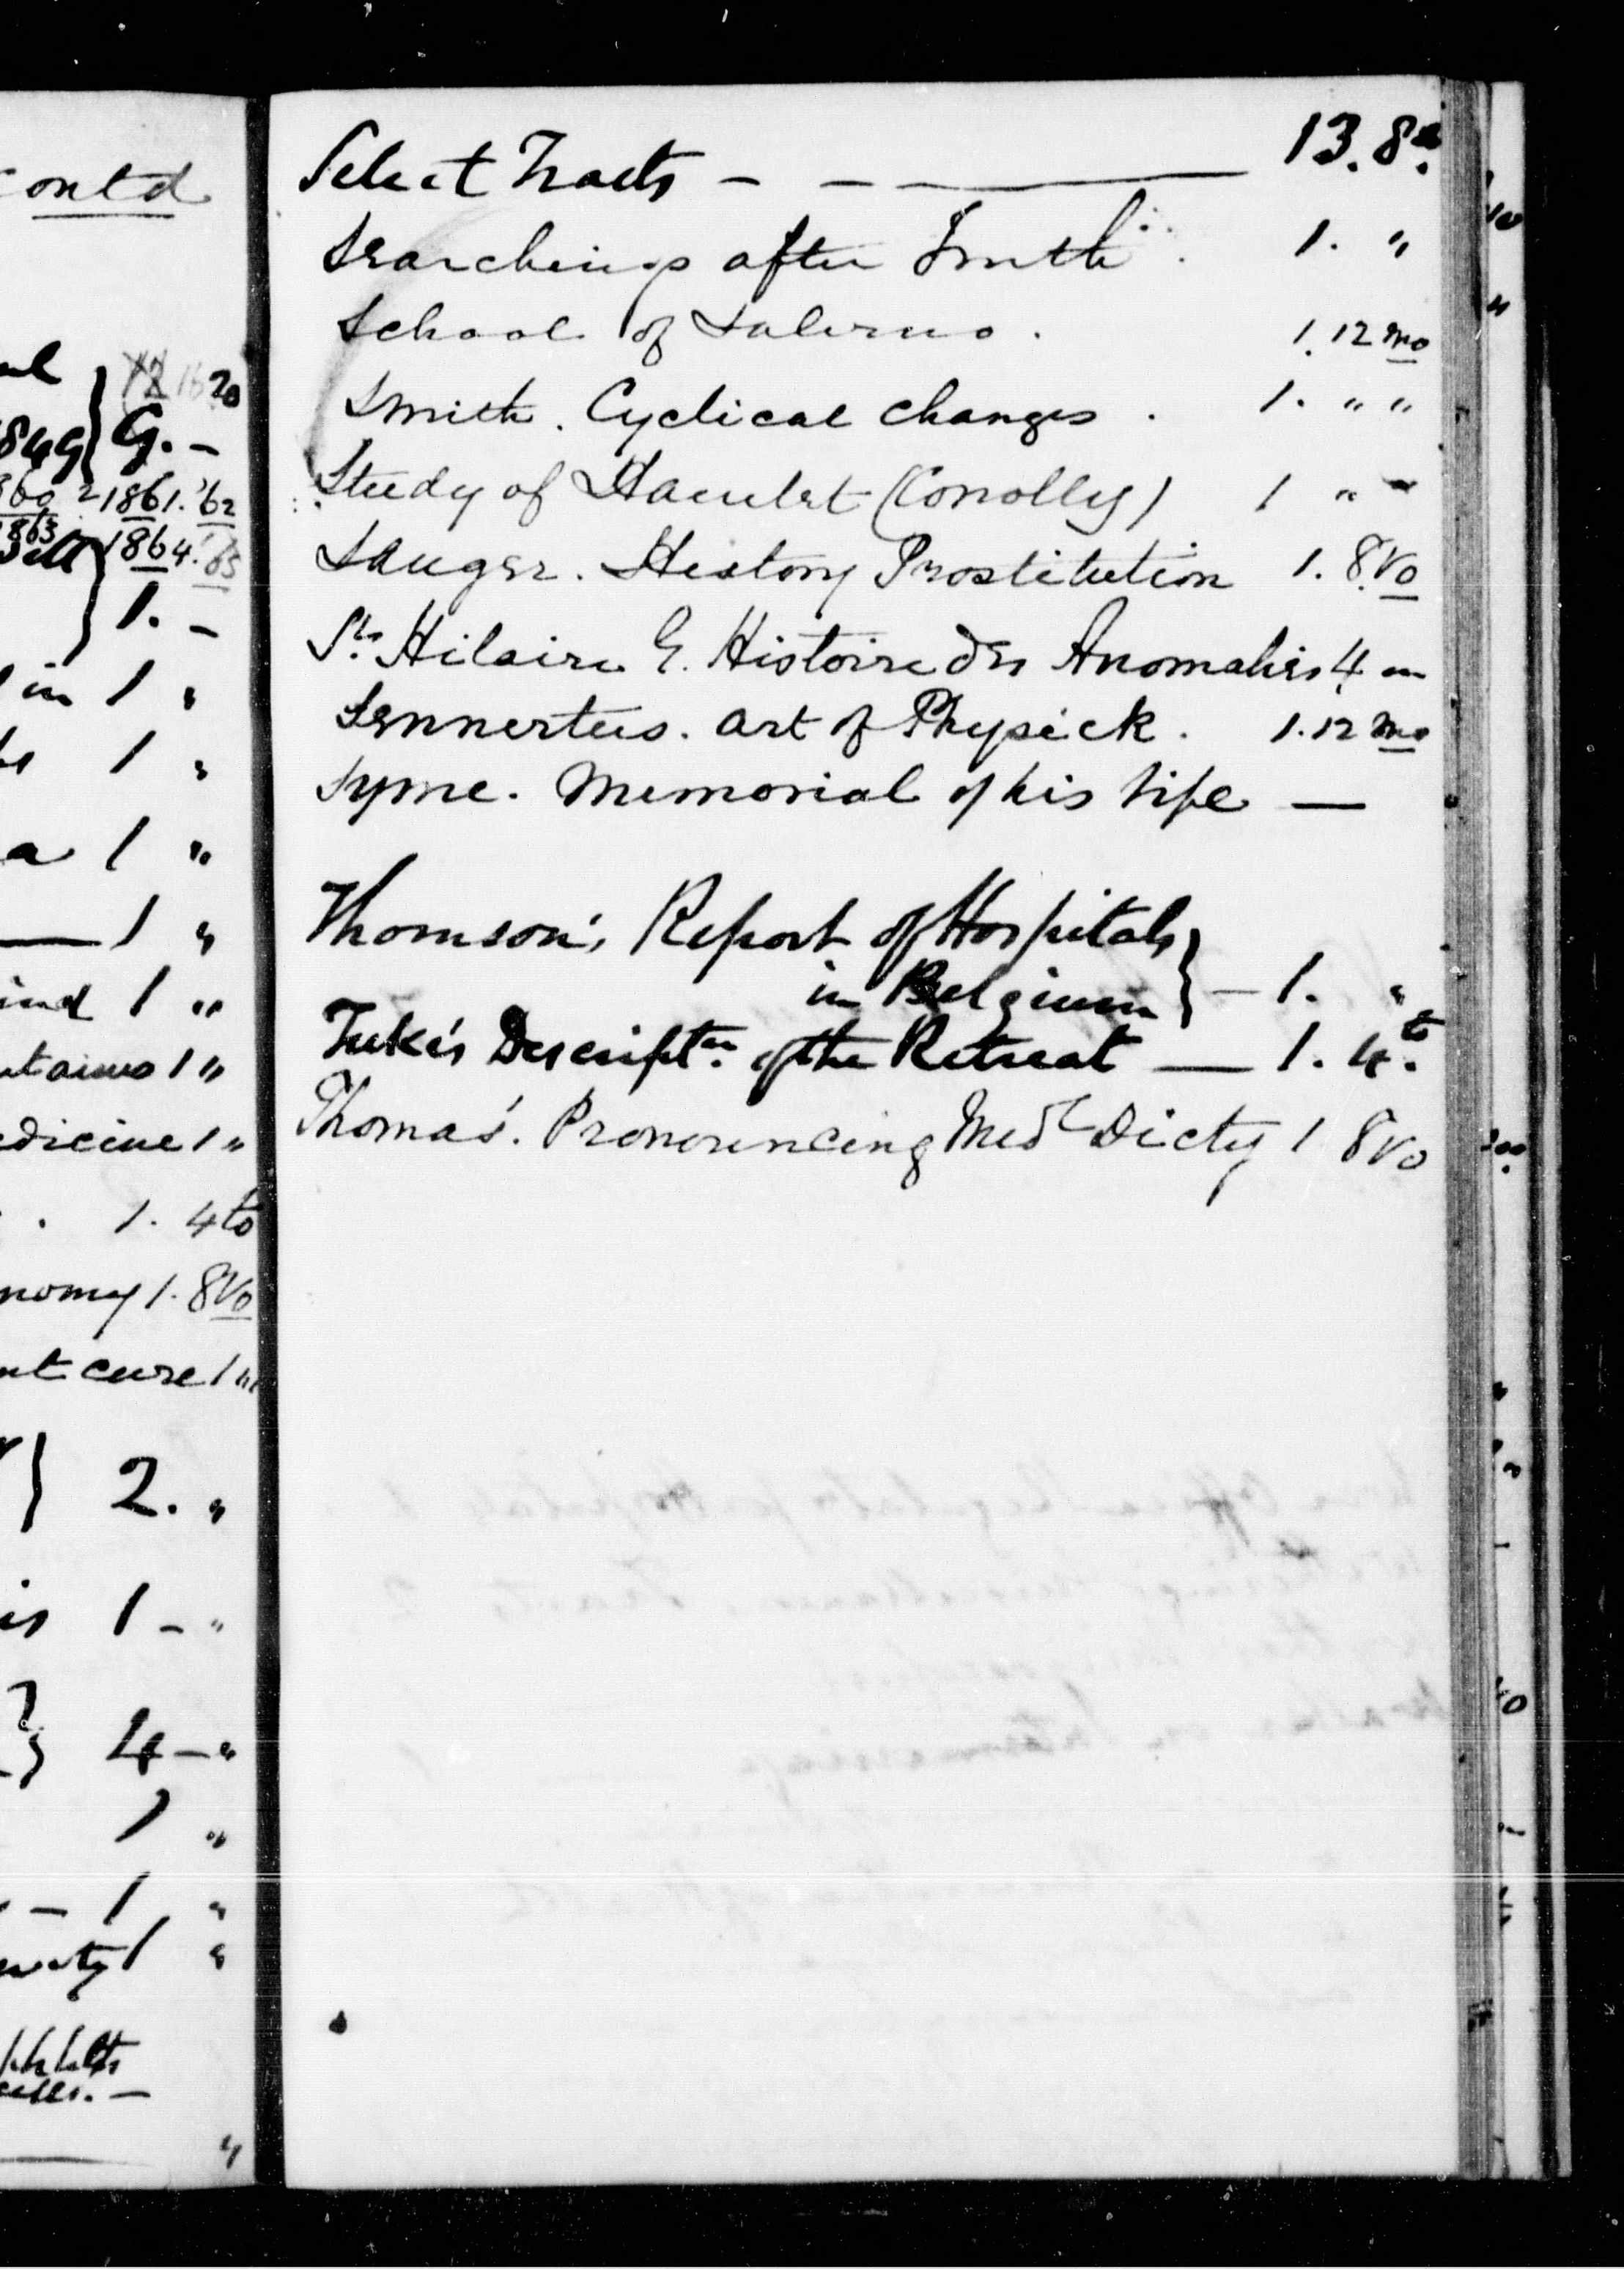 contd
20
1849 } G. -
1860 2 1861. '62
1863
1864. '65
1. -
in 1 "
1 "
a 1 "
1 "
ind 1 "
1 "
edicine 1 "
. 1. 4to
nomy 1. 8vo
nt cure 1 "
} 2. "
is 1 - "
} 4 - "
1 "
- 1 "
1 "
Select Tracts - - — 13. 8o.
Searchings after Truth . 1. "
School of Salerno . 1. 12mo
Smith . Cyclical changes . 1. " "
Study of Hamlet (Conolly) 1 " "
Sanger . History Prostitution 1. 8vo
St. Hilaire G. Histoire des Anomalies 4 "
Sennertus . art of Physick . 1. 12mo
Syme . Memorial of his life —
Thomson's Report of Hospitals
in Belgium } — 1. "
Tuke's Descriptn. of the Retreat — 1. 4to.
Thomas'. Pronouncing Medl Dicty 1 8vo